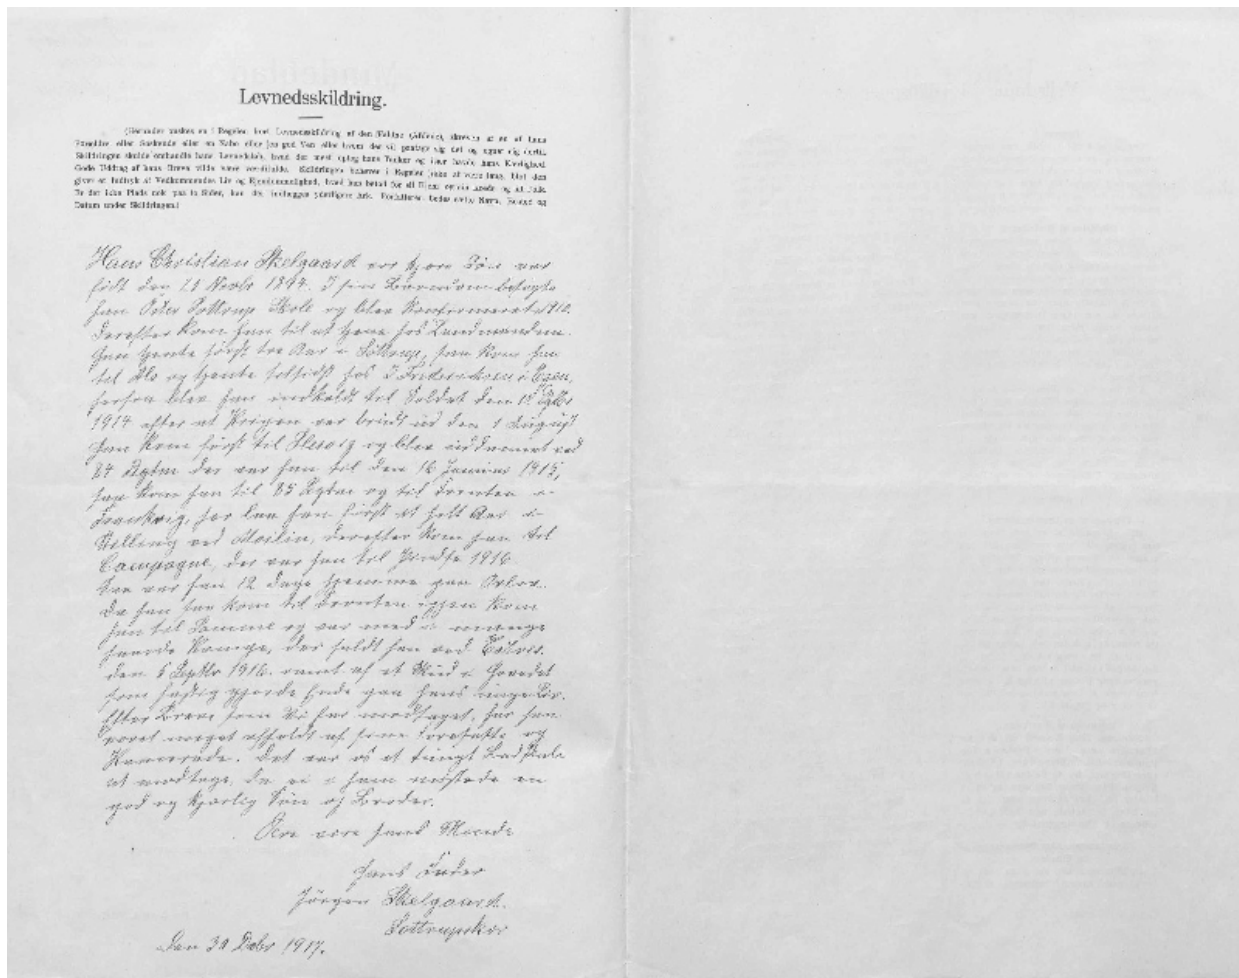 Levnedsskildring.
(Herunder ønskes en i Regelen kort Levnedsskildring af den Faldne (Afdøde), skreven af en af hans
Forældre eller Søskende eller en Nabo eller god Ven eller hvem der vil paatage sig det og egner sig dertil.
Skildringen skulde omhandle hans Levnedsløb, hvad der mest optog hans Tanker og især havde hans Kærlighed.
Gode Uddrag af hans Breve vilde være værdifulde. Skildringen behøver i Regelen ikke at være lang, blot den
giver et Indtryk af Vedkommendes Liv og Ejendommelighed, hvad han betød for sit Hjem og sin Kreds og sit Folk.
Er der ikke Plads nok paa to Sider, kan der indlægges yderligere Ark. Forfatteren bedes skrive Navn, Bosted og
Datum under Skildringen.)
Hans Christian Skelgaard vor kjære Søn var
født den Novbr 1894. I sin Barndom besøgte
han Øster Sottrup Skole og blev konfirmeret 1910.
Derefter kom han til at tjene hos Landmænden.
Han tjente først tre Aar i Sottrup, saa kom han
til Als og tjente sidst hos J Frederiksen i
herfra blev han indkaldt til Soldat den
1914 efter at Krigen var brudt ud den 1 August
Han kom først til Slesvig og blev uddannet ved
84 Rgtm der var han til den 16 Januar 1915,
saa kom han til 85 Rgtm og til Fronten i
Frankrig, her laa han først et helt Aar i
Stilling ved derefter kom han til
Campagne, der var han til Pindse 1916.
Saa var han 12 Dage hjemme paa Orlov.
Da han saa kom til Fronten igjen kom
han til Somme og var med i mange
haarde Kampe, der faldt han ved
den 6 Septbr 1916. ramt af et Skud i Hovedet
som hastig gjorde Ende paa hans unge Liv.
Efter Breve som Vi har modtaget, har han
været meget afholdt af sine Foresatte og
Kamerade. Det var os et tungt Budskab
at modtage, da vi i ham mistede en
god og kjærlig Søn og Broder.
Ære være hans Minde
hans Fader
Jørgen Skelgaard.
Sottrupskov
Den 30 Debr 1917.